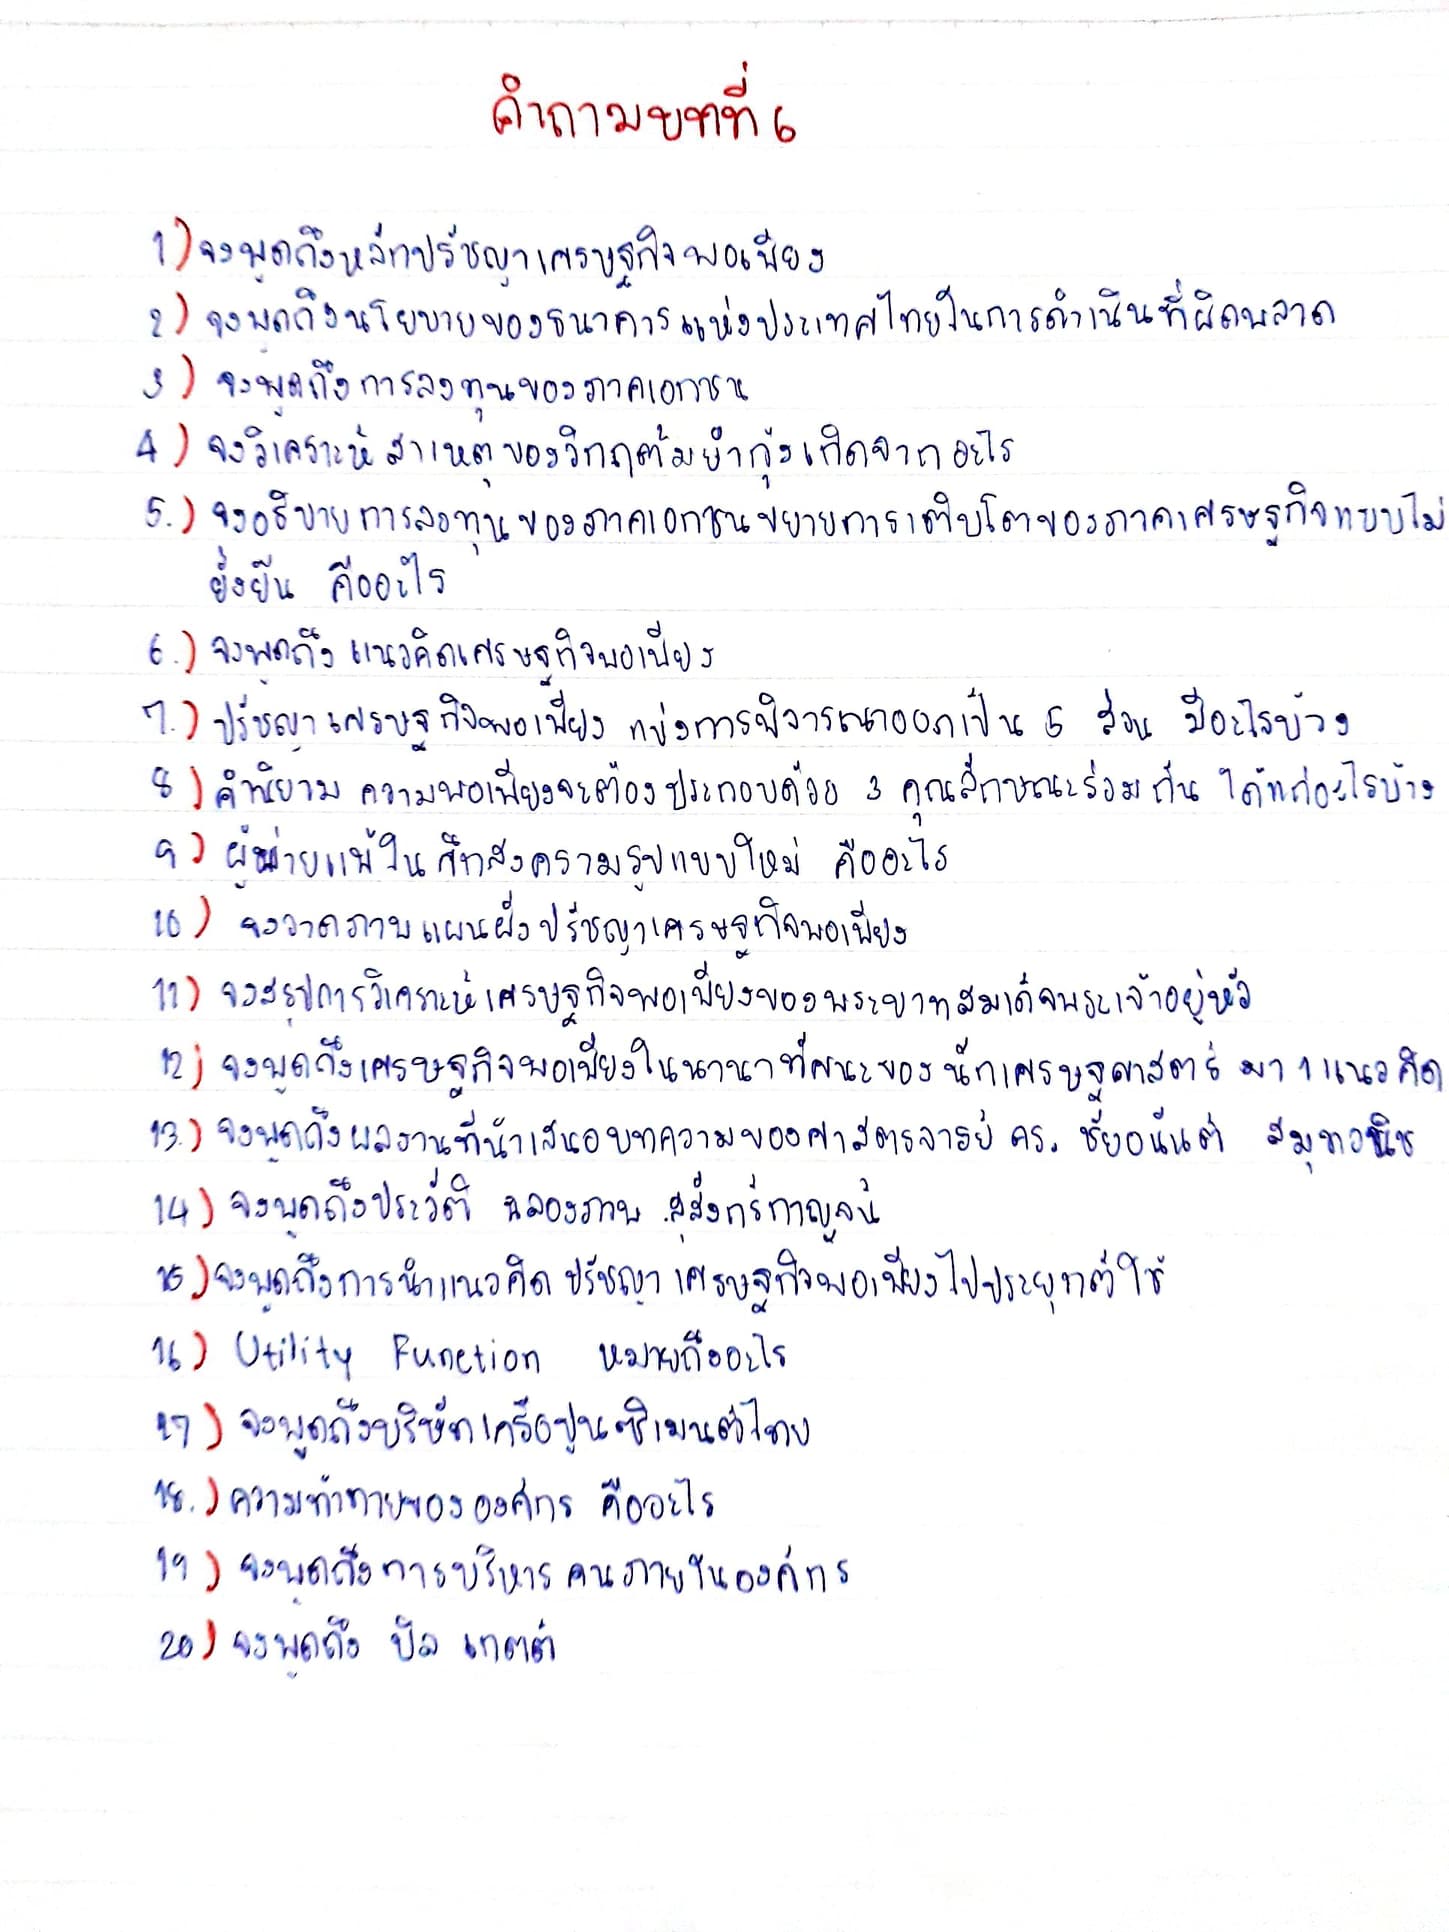 คำถามบทที่ 6
1) จงพูดถึงหลักปรัชญาเศรษฐกิจพอเพียง
2) จงพูดถึงนโยบายของธนาคารแห่งประเทศไทยในการดำเนินที่ผิดพลาด
3) จงพูดถึงการลงทุนของภาคเอกชน
4) จงวิเคราะห์สาเหตุของวิกฤตต้มยำกุ้งเกิดจากอะไร
5.) จงอธิบายการลงทุนของภาคเอกชนขยายการเติบโตของภาคเศรษฐกิจแบบไม่
ยั่งยืน คืออะไร
6.) จงพูดถึง แนวคิดเศรษฐกิจพอเพียง
7.) ปรัชญาเศรษฐกิจพอเพียง แบ่งการพิจารณาออกเป็น 5 ส่วน มีอะไรบ้าง
8) คำนิยาม ความพอเพียงจะต้องประกอบด้วย 3 คุณลักษณะร่วมกัน ได้แก่อะไรบ้าง
9) ผู้พ่ายแพ้ในศึกสงครามรูปแบบใหม่ คืออะไร
10) จงวาดภาพแผนผังปรัชญาเศรษฐกิจพอเพียง
11) จงสรุปการวิเคราะห์เศรษฐกิจพอเพียงของพระบาทสมเด็จพระเจ้าอยู่หัว
12) จงพูดถึงเศรษฐกิจพอเพียงในนานาทัศนะของนักเศรษฐศาสตร์ มา 1 แนวคิด
13.) จงพูดถึงผลงานที่นำเสนอบทความของศาสตราจารย์ ดร. ชัยอนันต์ สมุทวณิช
14) จงพูดถึงประวัติ ฉลองภพ สุสังกร์กาญจน์
15) จงพูดถึงการนำแนวคิด ปรัชญา เศรษฐกิจพอเพียงไปประยุกต์ใช้
16) Utility Function หมายถึงอะไร
17) จงพูดถึงบริษัทเครือปูนซิเมนต์ไทย
18.) ความท้าทายขององค์กร คืออะไร
19) จงพูดถึงการบริหารคนภายในองค์กร
20) จงพูดถึง บิล เกตต์